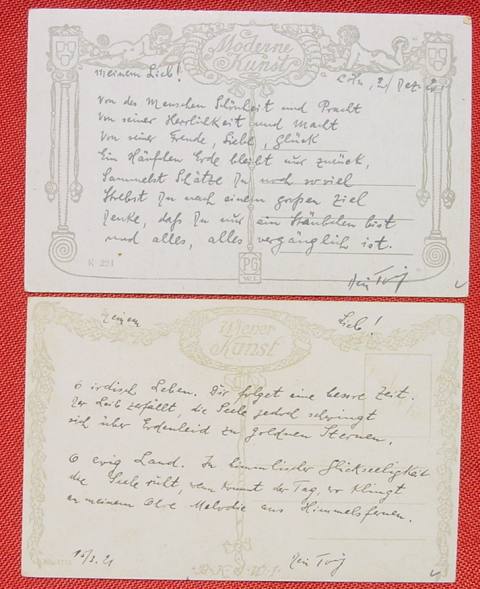 Moderne
Kunst
Meinem Lieb!
Cöln, 2/Dez. 20
Von des Menschen Schönheit und Pracht
Von seiner Herrlichkeit und Macht
Von seiner Freude, Liebe, Glück
Ein Häuflein Erde bleibt nur zurück,
Sammelst Schätze Du noch so viel
Strebst Du nach einem großen Ziel
Denke, daß Du nur ein Stäubchen bist
und alles, alles vergänglich ist.
K. 221
PG
W.I.
Dein
Wiener
Kunst
Meinem Lieb!
O irdisch Leben. Dir folget eine bessre Zeit.
Der Leib zerfällt, die Seele jedoch schwingt
sich über Erdenleid zu goldnen Sternen.
O ewig Land. In himmlischer Glückseeligkeit
die Seele ruht, wann kommt der Tag, wo klingt
an meinem Ohre Melodie aus Himmelsfernen.
15/3. 21
Dein
B.K.W.I.